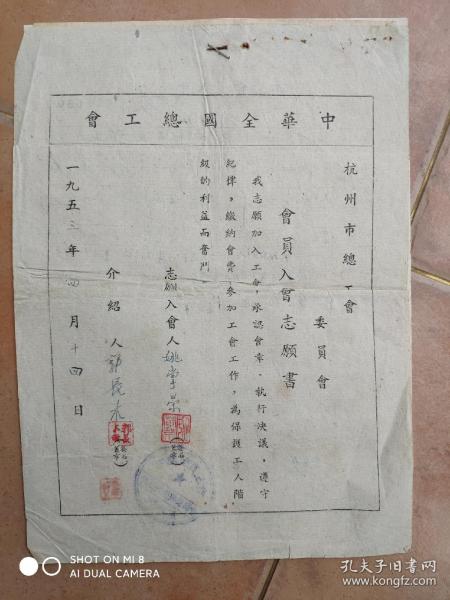 中華全國總工會
杭州市總工會
委員會
會員入會志願書
我志願加入工會，承認會章，执行決議，遵守
紀律，繳納會費，參加工會工作，為保護工人階
級的利益而奮鬥
志願入會人
介紹人
一九五三年四月十四日
SHOT ON MI 8
AI DUAL CAMERA
孔夫子旧书网
www.kongfz.com